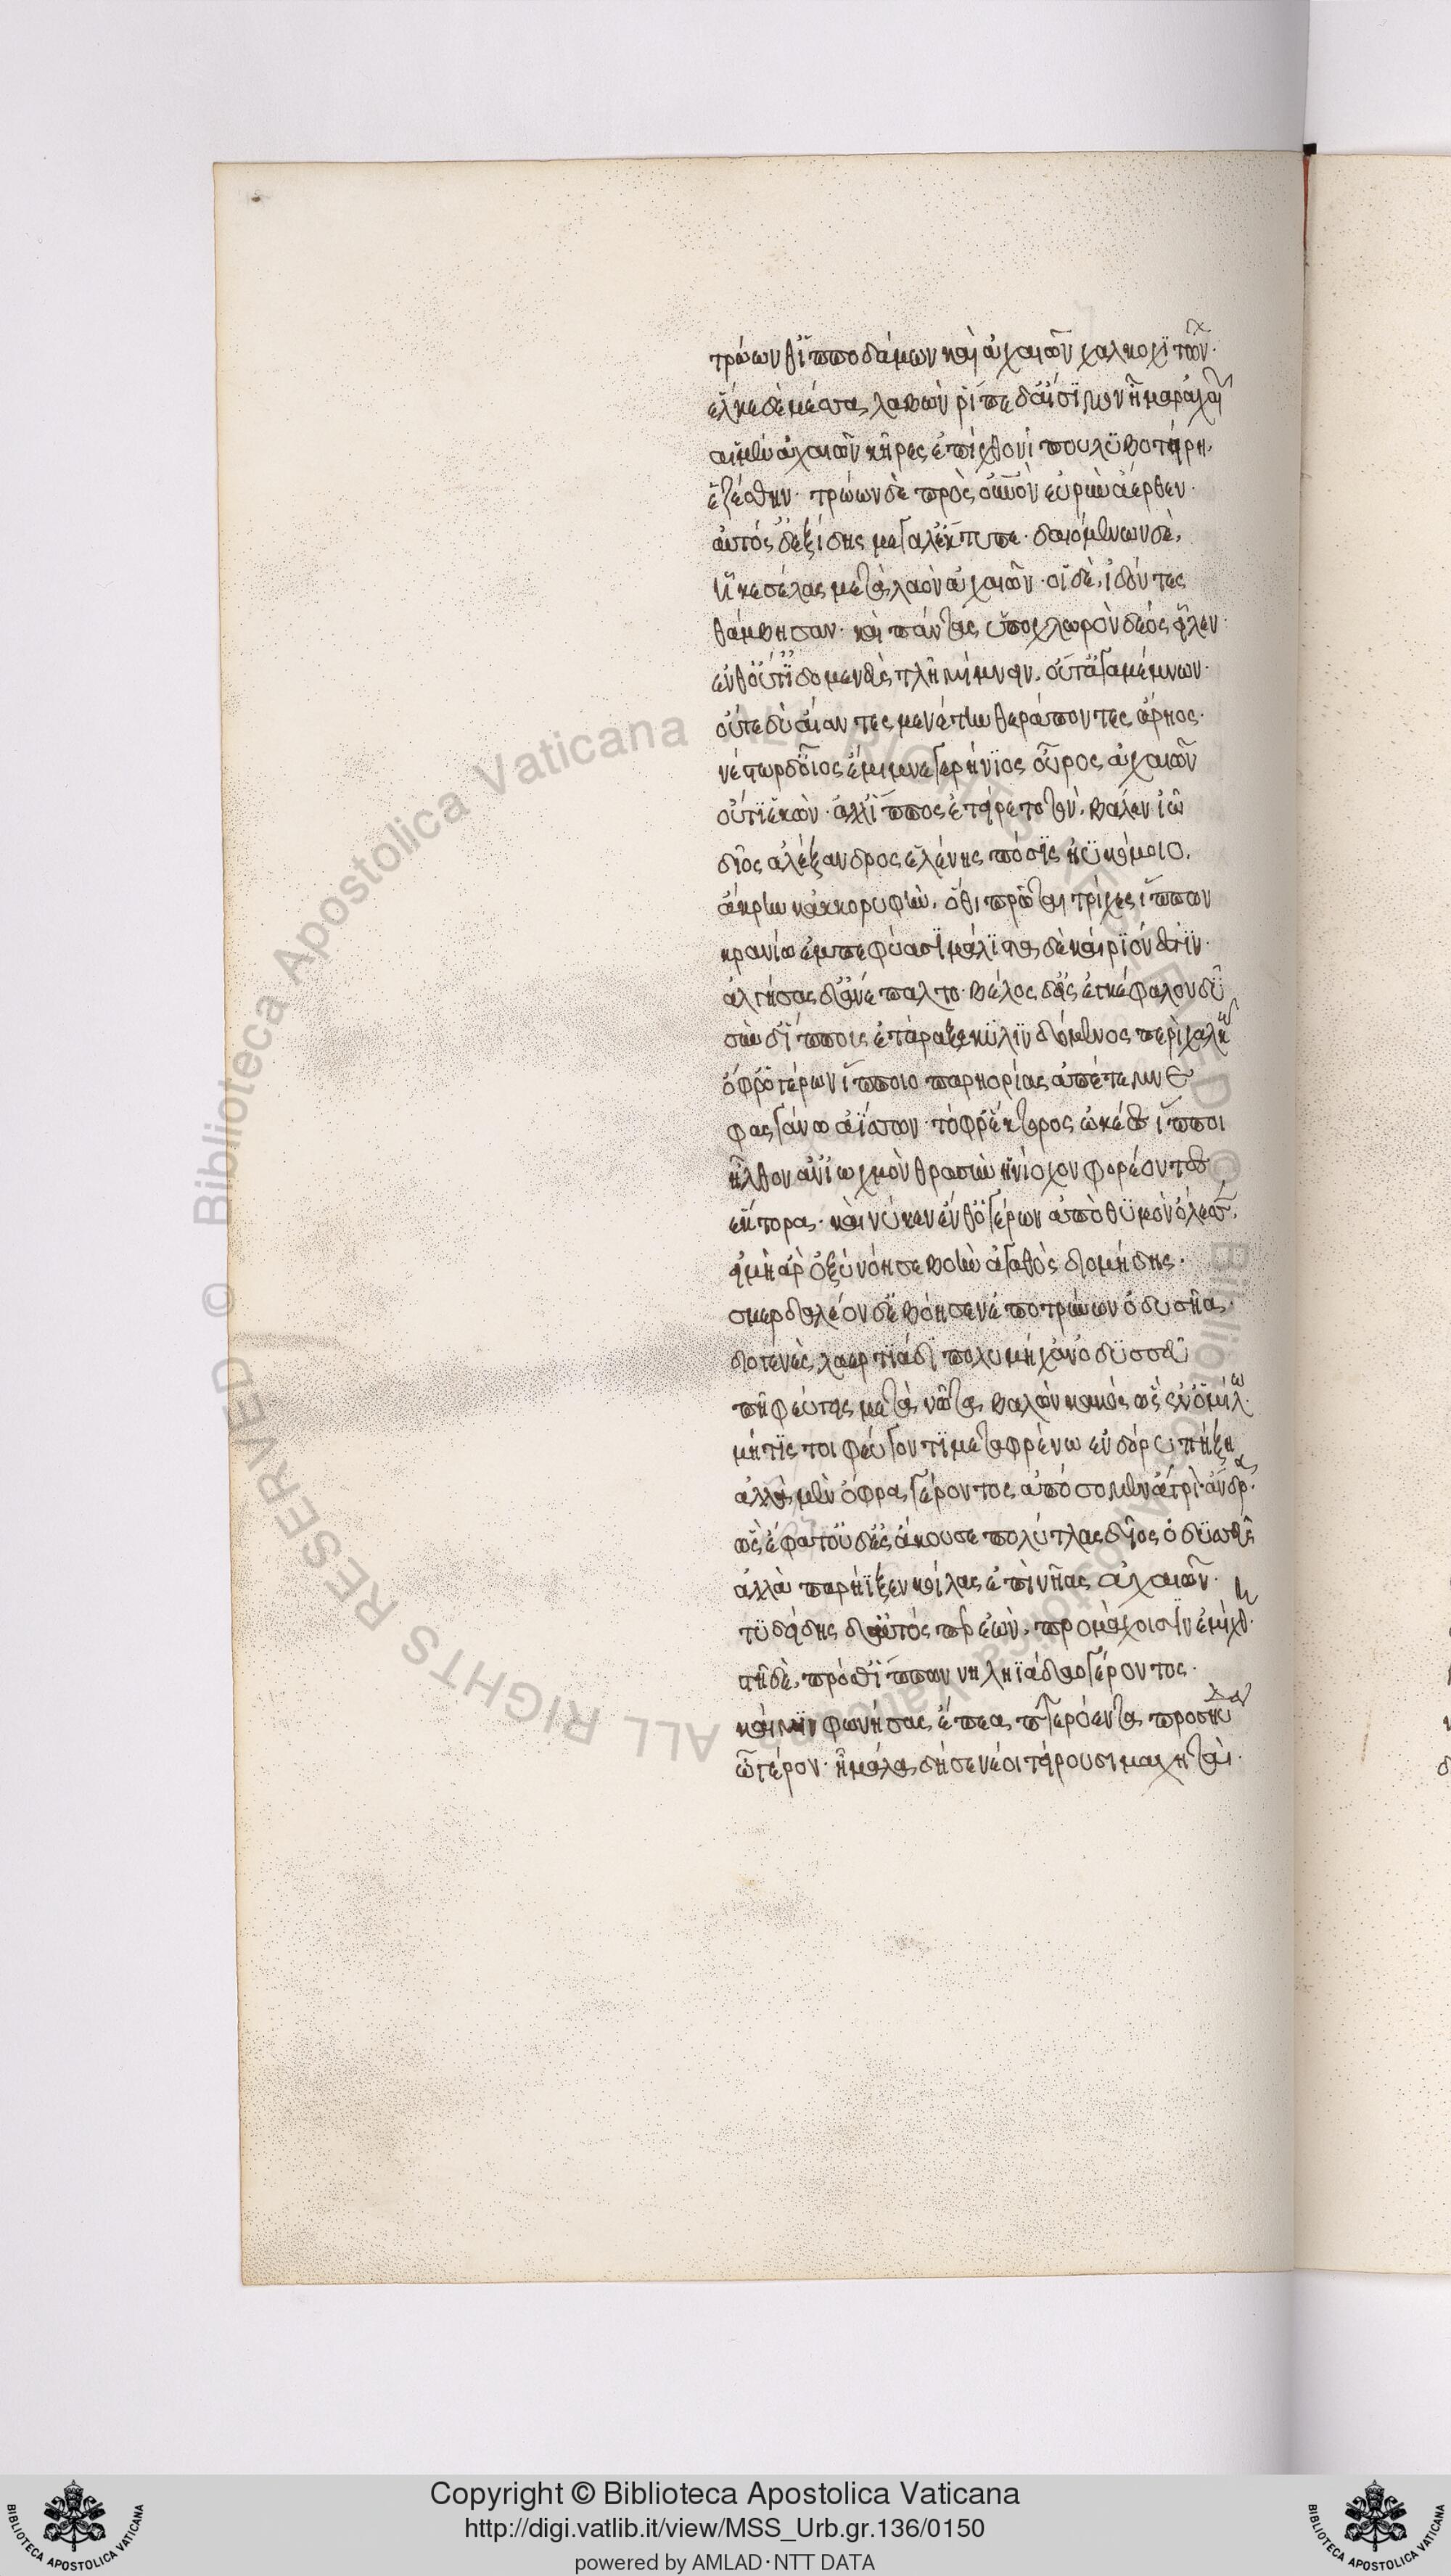 τρώων θ' ἵπποδάμων καὶ ἀχαιῶν χαλκοχϊτώνων·
εἷλκε δὲ μέσσα λαβὼν ῥέπε δ' αἴσϊμον ἦμαρ ἀχαιῶν
αἱ μὲν ἀχαιῶν κῆρες ἐπὶ χθονὶ πουλϋβοτείρη,
ἑζέσθην· τρώων δὲ πρὸς οὐρανὸν εὐρὺν ἄερθεν·
αὐτὸς δ' ἐξ ἴδης μεγάλ' ἔκτυπε· δαιόμενον δὲ,
ἧκε σέλας μετὰ λαὸν ἀχαιῶν· οἱ δὲ, ἰδόντες
θάμβησαν· καὶ πάντας ὑπο χλωρὸν δέος εἷλεν·
ἔνθ' οὔτ' ἰδομενεὺς τλῆ μίμνειν, οὔτ' ἀγαμέμνων·
οὔτε δύ' αἴαντες μενέτην θεράποντες ἄρηος·
νέστωρ δ' οἶος ἔμιμνε γερήνϊος οὖρος ἀχαιῶν
οὔτϊ ἑκὼν· ἀλλ' ἵππος ἐτείρετο τὸν, βάλεν ἰῶ
δῖος ἀλέξανδρος ἑλένης πόσϊς ἠϋκόμοιο,
ἄκρην κὰκ κορυφὴν, ὅθι πρῶται τρίχες ἵππων
κρανίω ἐμπεφύασϊ μάλϊστα δὲ καίρϊόν ἐστϊν·
ἀλγήσας δ' ἀνέπαλτο· βέλος δ' εἰς ἐγκέφαλον δῦ
σὺν δ' ἵππους ἐτάραξε κϋλϊνδόμενος περὶ χαλκῶ
ὄφρ' ὁ γέρων ἵπποιο παρηορίας ἀπέτεμνε
φασγάνω ἀΐσσων· τόφρ' ἕκτορος ὠκέες ἵπποι
ἦλθον ἀν' ἰωχμὸν θρασὺν ἡνίοχον φορέοντες
ἕκτορα· καί νύ κεν ἔνθ' ὁ γέρων ἀπὸ θϋμὸν ὄλεσσεν,
εἰ μὴ ἄρ' ὀξὺ νόησε βοὴν ἀγαθὸς διομήδης·
σμερδαλέον δ' ἐβόησεν ἐποτρύνων ὀδυσῆα·
διογενὲς λαερτϊάδη πολυμήχαν' ὀδϋσσεῦ
πῆ φεύγεις μετὰ νῶτα βαλὼν κακὸς ὣς ἐν ὁμίλω·
μή τϊς τοι φεύγοντϊ μεταφρένω ἐν δόρυ πήξη
ἀλλὰ μέν' ὄφρα γέροντος ἀπόσομεν ἄγρϊον ἄνδρα·
ὣς ἔφατ' οὐδ' ἐσάκουσε πολύτλας δῖος ὀδϋσσεὺς
ἀλλὰ παρήϊξεν κοίλας ἐπὶ νῆας ἀχαιῶν·
τϋδείδης δ' αὐτός περ ἐὼν, προμάχοισϊν ἐμίχθη·
στῆ δὲ, πρόσθ' ἵππων νηληϊάδαο γέροντος·
καί μϊν φωνήσας ἔπεα πτερόεντα προσηύδα
ὦ γέρον· ἦ μάλα δή σε νέοι τείρουσι μαχηταὶ·
Copyright © Biblioteca Apostolica Vaticana
http://digi.vatlib.it/view/MSS_Urb.gr.136/0150
powered by AMLAD·NTT DATA